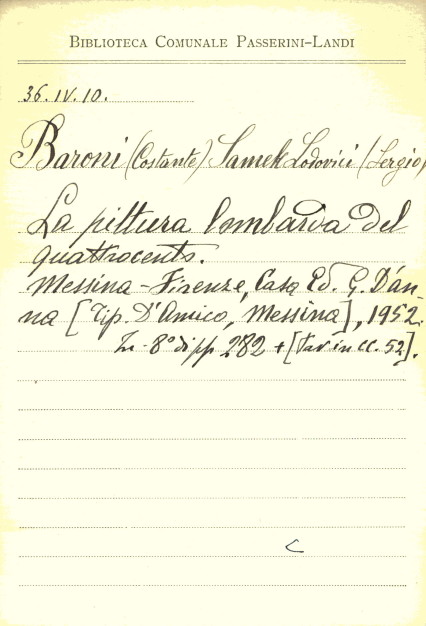 BIBLIOTECA COMUNALE PASSERINI-LANDI
36.IV.10.
Baroni (Costante) Samek Lodovici (Sergio)
La pittura lombarda del
quattrocento.
Messina - Firenze, Casa Ed. G. D'An-
na [Tip. D'Amico, Messina], 1952.
In - 8° di pp 282 + [Tav in cc. 52].
C